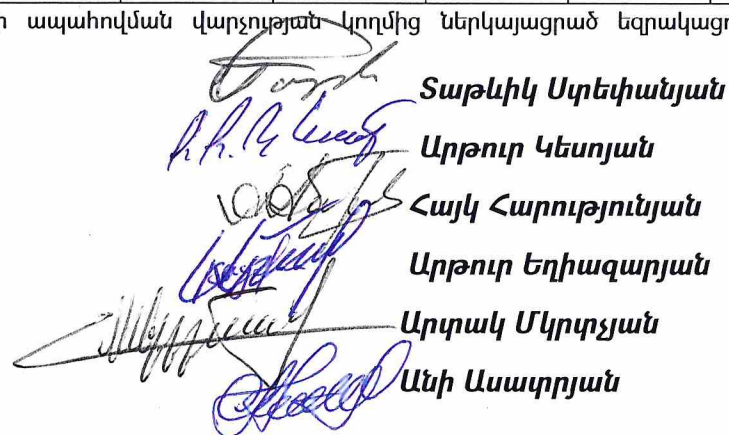 ապահովման վարչության կողմից ներկայացրած
Տաթևիկ Ստեփանյան
Արթուր Կեսոյան
Հայկ Հարությունյան
Արթուր Եղիազարյան
Արտակ Մկրտչյան
Անի Ասատրյան